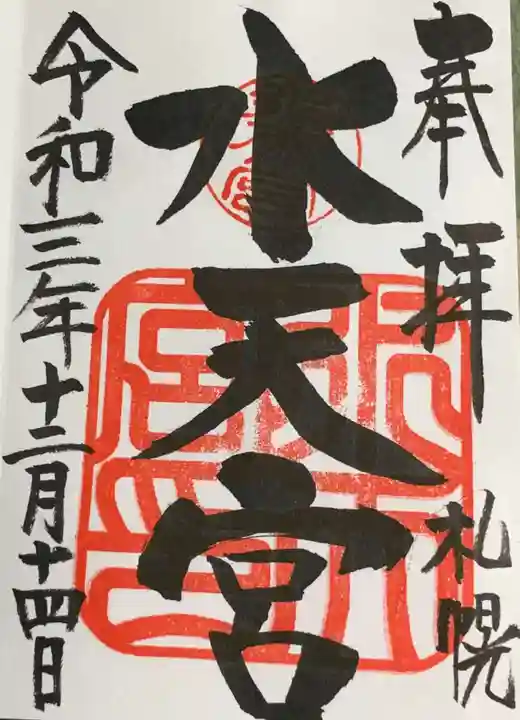 奉拝 札幌
水天宮
令和三年十二月十四日